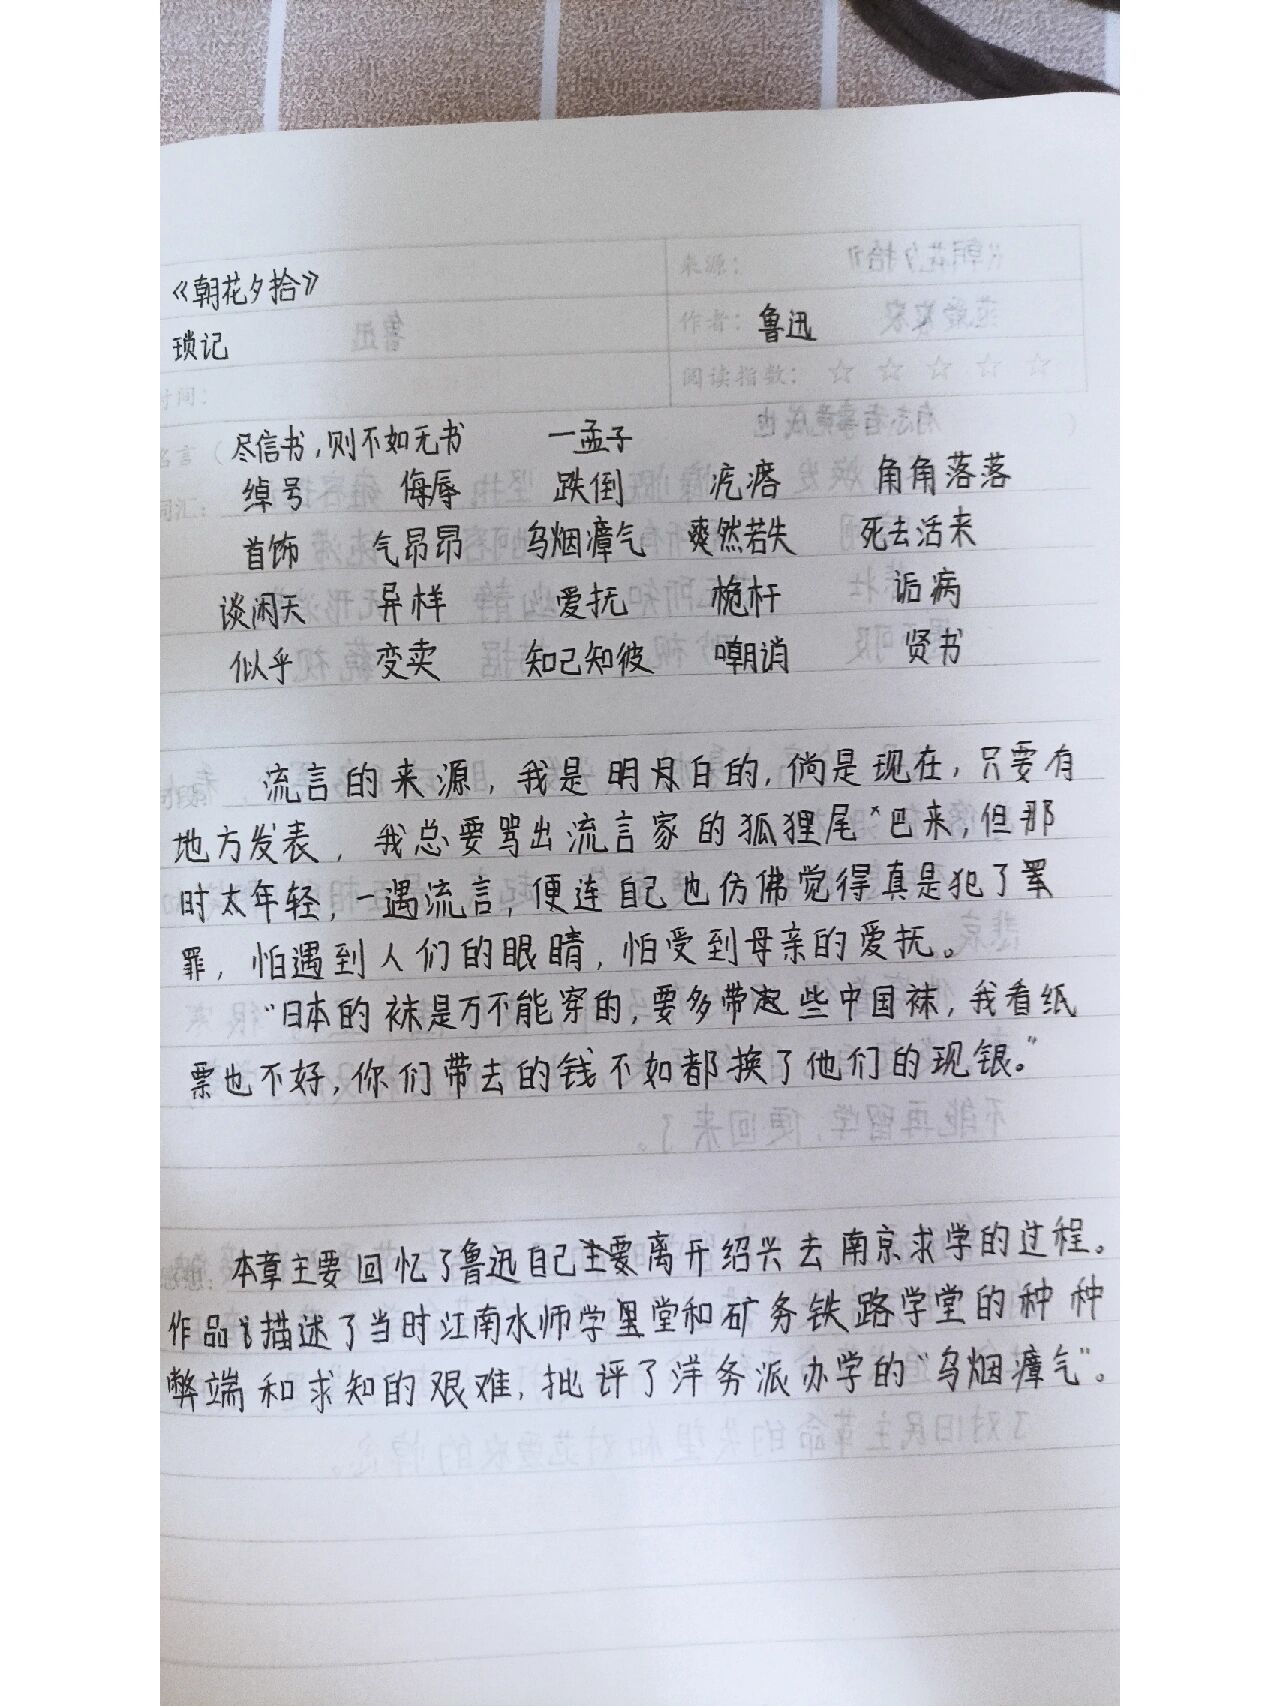 《朝花夕拾》
来源：
琐记
作者： 鲁迅
时间：
阅读指数： ☆ ☆ ☆ ☆ ☆
名言（ 尽信书，则不如无书 一孟子 ）
词汇： 绰号 侮辱 跌倒 疙瘩 角角落落
首饰 气昂昂 乌烟瘴气 爽然若失 死去活来
谈闲天 异样 爱抚 桅杆 诟病
似乎 变卖 知己知彼 嘲诮 贤书
流言的来源，我是明月白的，倘是现在，只要有
地方发表，我总要骂出流言家的狐狸尾巴来，但那
时太年轻，一遇流言，便连自己也仿佛觉得真是犯了
罪，怕遇到人们的眼睛，怕受到母亲的爱抚。
“日本的袜是万不能穿的，要多带些中国袜，我看纸
票也不好，你们带去的钱不如都换了他们的现银。”
感想： 本章主要回忆了鲁迅自己主要离开绍兴去南京求学的过程。
作品描述了当时江南水师学堂和矿务铁路学堂的种种
弊端和求知的艰难，批评了洋务派办学的“乌烟瘴气”。